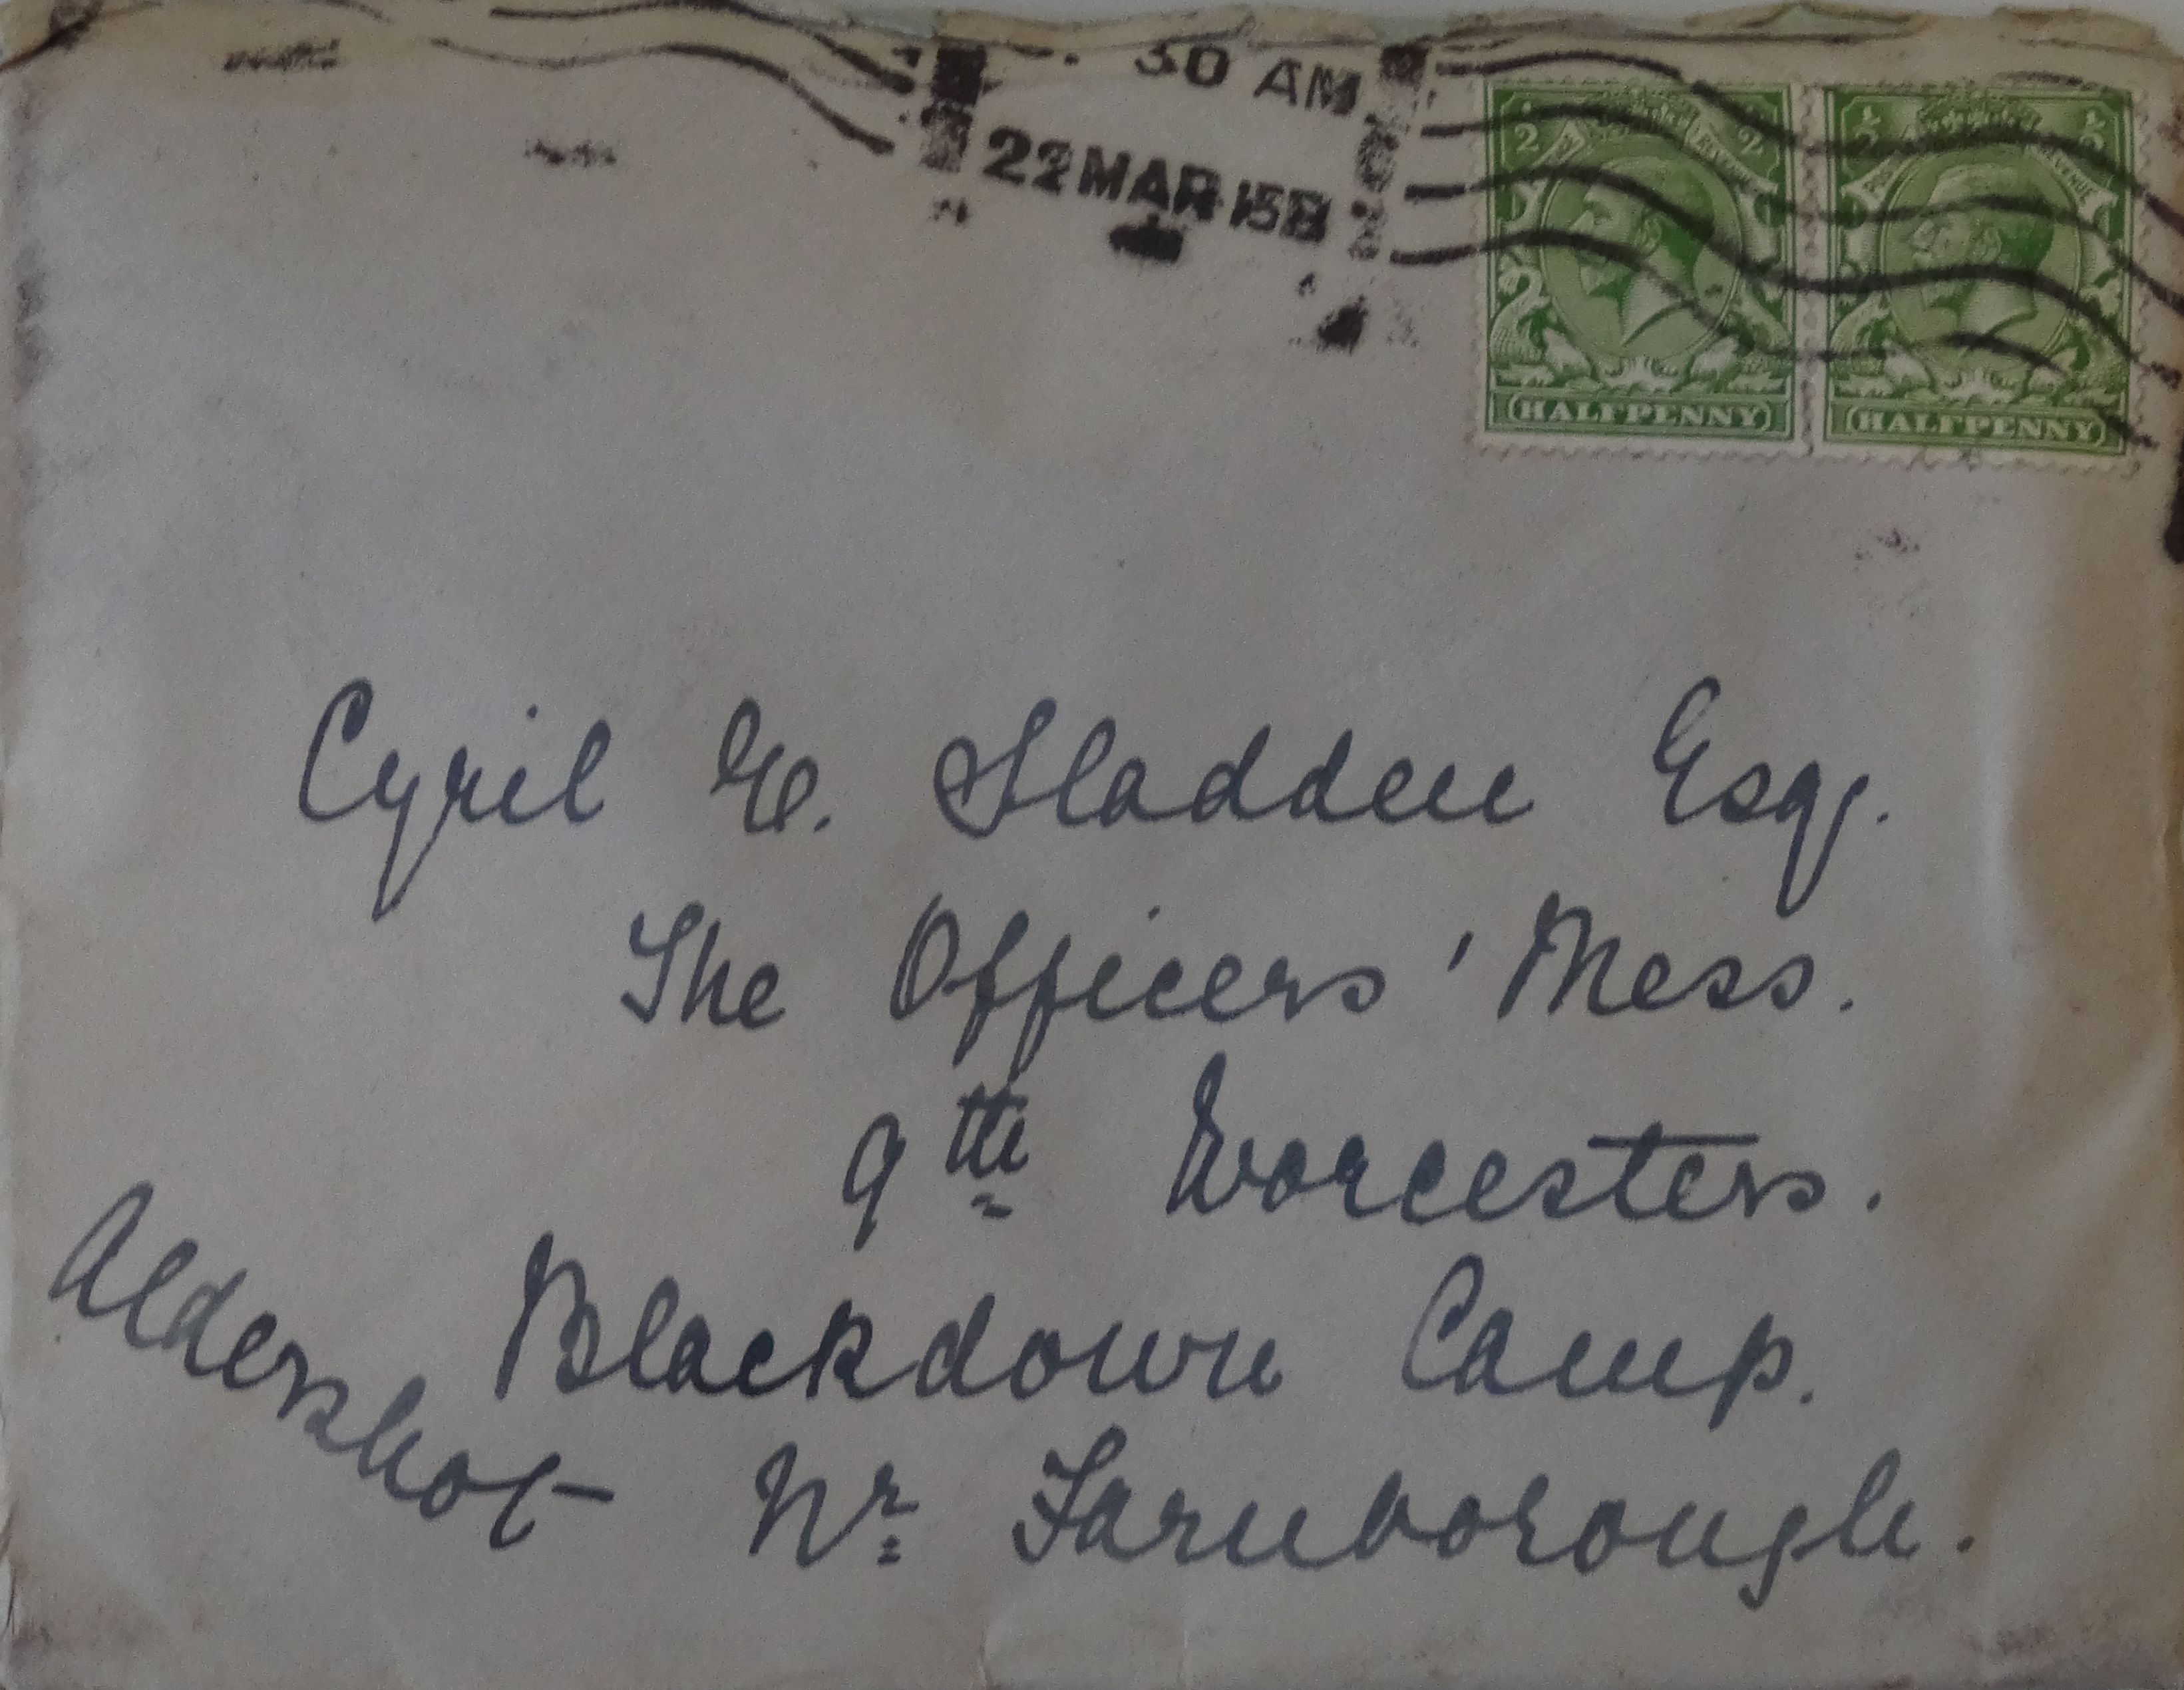 30 AM
22 MAR 15 B
HALFPENNY HALFPENNY
Cyril E. Sladden Esq.
The Officers' Mess.
9th Worcesters.
Blackdown Camp.
Nr Farnborough.
Aldershot